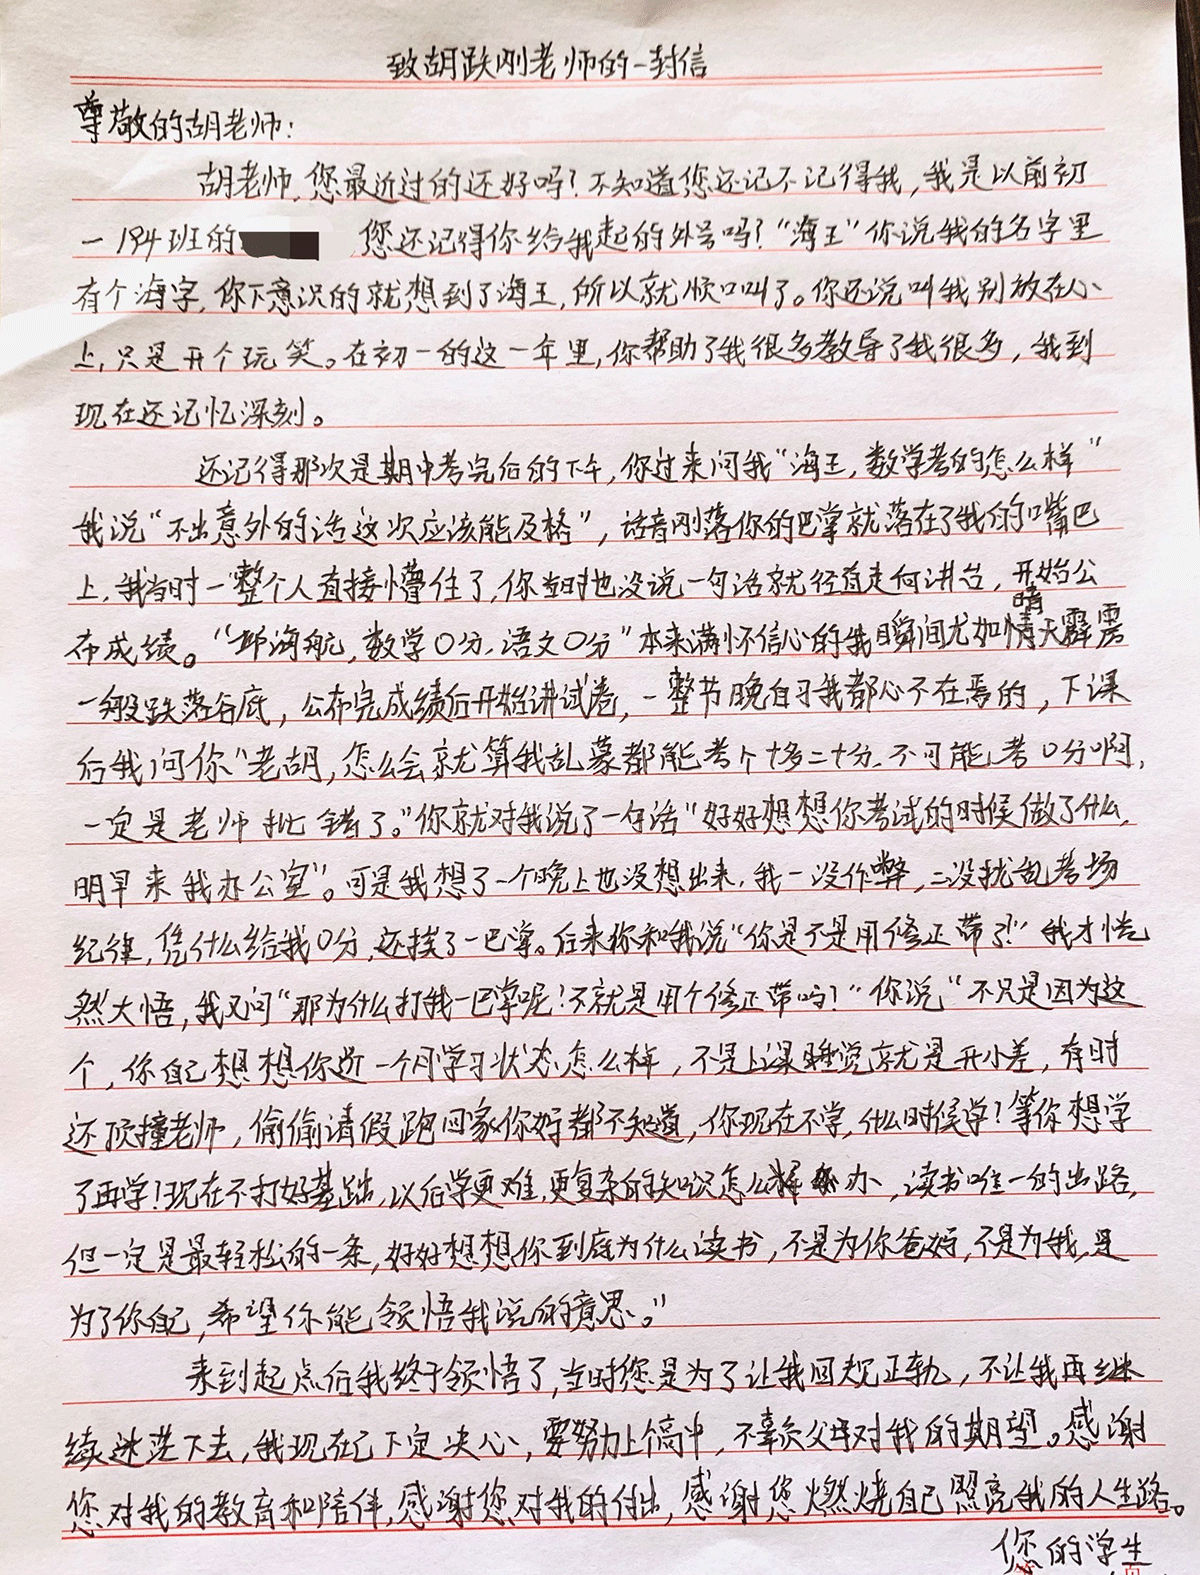 致胡跌刚老师的一封信
尊敬的胡老师:
胡老师,您最近过的还好吗?不知道您还记不记得我,我是以前初
一194班的 您还记得你给我起的外号吗?“海王”你说我的名字里
有个海字,你下意识的就想到了海王,所以就顺口叫了。你还说叫我别放在心
上,只是开个玩笑。在初一的这一年里,你帮助了我很多教导了我很多,我到
现在还记忆深刻。
还记得那次是期中考完后的下午,你过来问我“海王,数学考的怎么样”
我说“不出意外的话这次应该能及格”,话音刚落你的巴掌就落在了我的嘴巴
上,我当时一整个人直接懵住了,你当时也没说一句话就径直走向讲台,开始公
布成绩。“邱海航,数学0分,语文0分”本来满怀信心的我瞬间尤如晴天霹雳
一般跌落谷底,公布完成绩后开始讲试卷,一整节晚自习我都心不在焉的,下课
后我问你“老胡,怎么会就算我乱蒙都能考个十多二十分,不可能考0分啊,
一定是老师批错了。”你就对我说了一句话“好好想想你考试的时候做了什么,
明早来我办公室”。可是我想了一个晚上也没想出来,我一没作弊,二没扰乱考场
纪律,凭什么给我0分,还挨了一巴掌。后来你和我说“你是不是用修正带了?”我才恍
然大悟,我又问“那为什么打我一巴掌呢!不就是用个修正带吗?”你说“不只是因为这
个,你自己想想你近一个月学习状态怎么样,不是上课睡觉就是开小差,有时
还顶撞老师,偷偷请假跑回家你好都不知道,你现在不学,什么时候学?等你想学
了再学!现在不打好基础,以后学更难,更复杂的知识怎么办,读书唯一的出路,
但一定是最轻松的一条,好好想想你到底为什么读书,不是为你爸妈,不是为我,是
为了你自己,希望你能领悟我说的意思。”
来到起点后我终于领悟了,当时您是为了让我回规正轨,不让我再继
续迷茫下去,我现在已下定决心,要努力上高中,不辜负父母对我的期望。感谢
您对我的教育和陪伴,感谢您对我的付出,感谢您燃烧自己照亮我的人生路。
您的学生